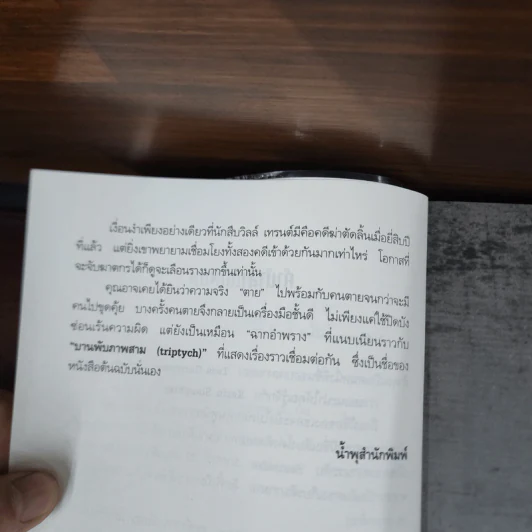 เงื่อนงำเพียงอย่างเดียวที่นักสืบวิลล์ เทรนต์มีคือคดีฆ่าตัดลิ้นเมื่อยี่สิบปี
ที่แล้ว แต่ยิ่งเขาพยายามเชื่อมโยงทั้งสองคดีเข้าด้วยกันมากเท่าไหร่ โอกาสที่
จะจับฆาตกรได้ก็ดูจะเลือนรางมากขึ้นเท่านั้น
คุณอาจเคยได้ยินว่าความจริง “ตาย” ไปพร้อมกับคนตายจนกว่าจะมี
คนไปขุดคุ้ย บางครั้งคนตายจึงกลายเป็นเครื่องมือชั้นดี ไม่เพียงแค่ใช้ปิดบัง
ซ่อนเร้นความผิด แต่ยังเป็นเหมือน “ฉากอำพราง” ที่แนบเนียนราวกับ
“บานพับภาพสาม (triptych)” ที่แสดงเรื่องราวเชื่อมต่อกัน ซึ่งเป็นชื่อของ
หนังสือต้นฉบับนั่นเอง
น้ำพุสำนักพิมพ์